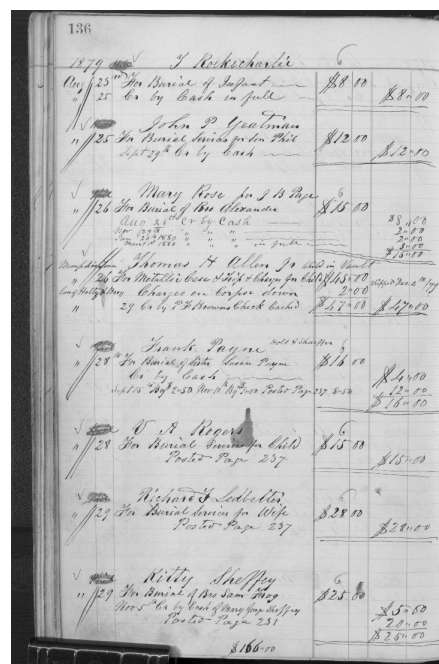 136
1879 T Rockecharlie 6
Aug 23rd For Burial of Infant $8 00
" 25 Cr by Cash in full $8.00
John P Yeatman
" 25 For Burial Services for Son Phil $12 00
Sept 29th Cr by Cash $12.00
Mary Rose for J B Page 6
" 26 For Burial of Bro Alexander $15 00
Aug 26th Cr by Cash $8.00
Nov 29th " " " 2.00
Jan 24th 1880 " " " 2.00
March 1st 1880 " " " in full 3.00
$15.00
Thomas H Allen Jr Child in Vault
" 26 For Metallic Case & Child $45.00 Shipped Dec 4th /79
Charges on Corpse down 2.00
" 29 Cr by Browns Check Cashed $47.00 $47.00
Frank Payne
" 28th For Burial of Sister Susan Payne $16 00
Cr by Cash $4.00
Sept 15th By $ 2.50 Nov Posted Page 237. 12.00
$16.00
V A Rogers 6
" 28 For Burial Services for Child $15 00
Posted Page 237 $15.00
Richard F Ledbetter 6
" 29 For Burial Services for Wife $28 00
Posted Page 237 $28.00
Kitty Sheffey 6
" 29 For Burial of Bro Sam $25 00
Nov 5th Cr by Cash of Mary Sheffey $5.00
Posted Page 231 20.00
$25.00
$166.00